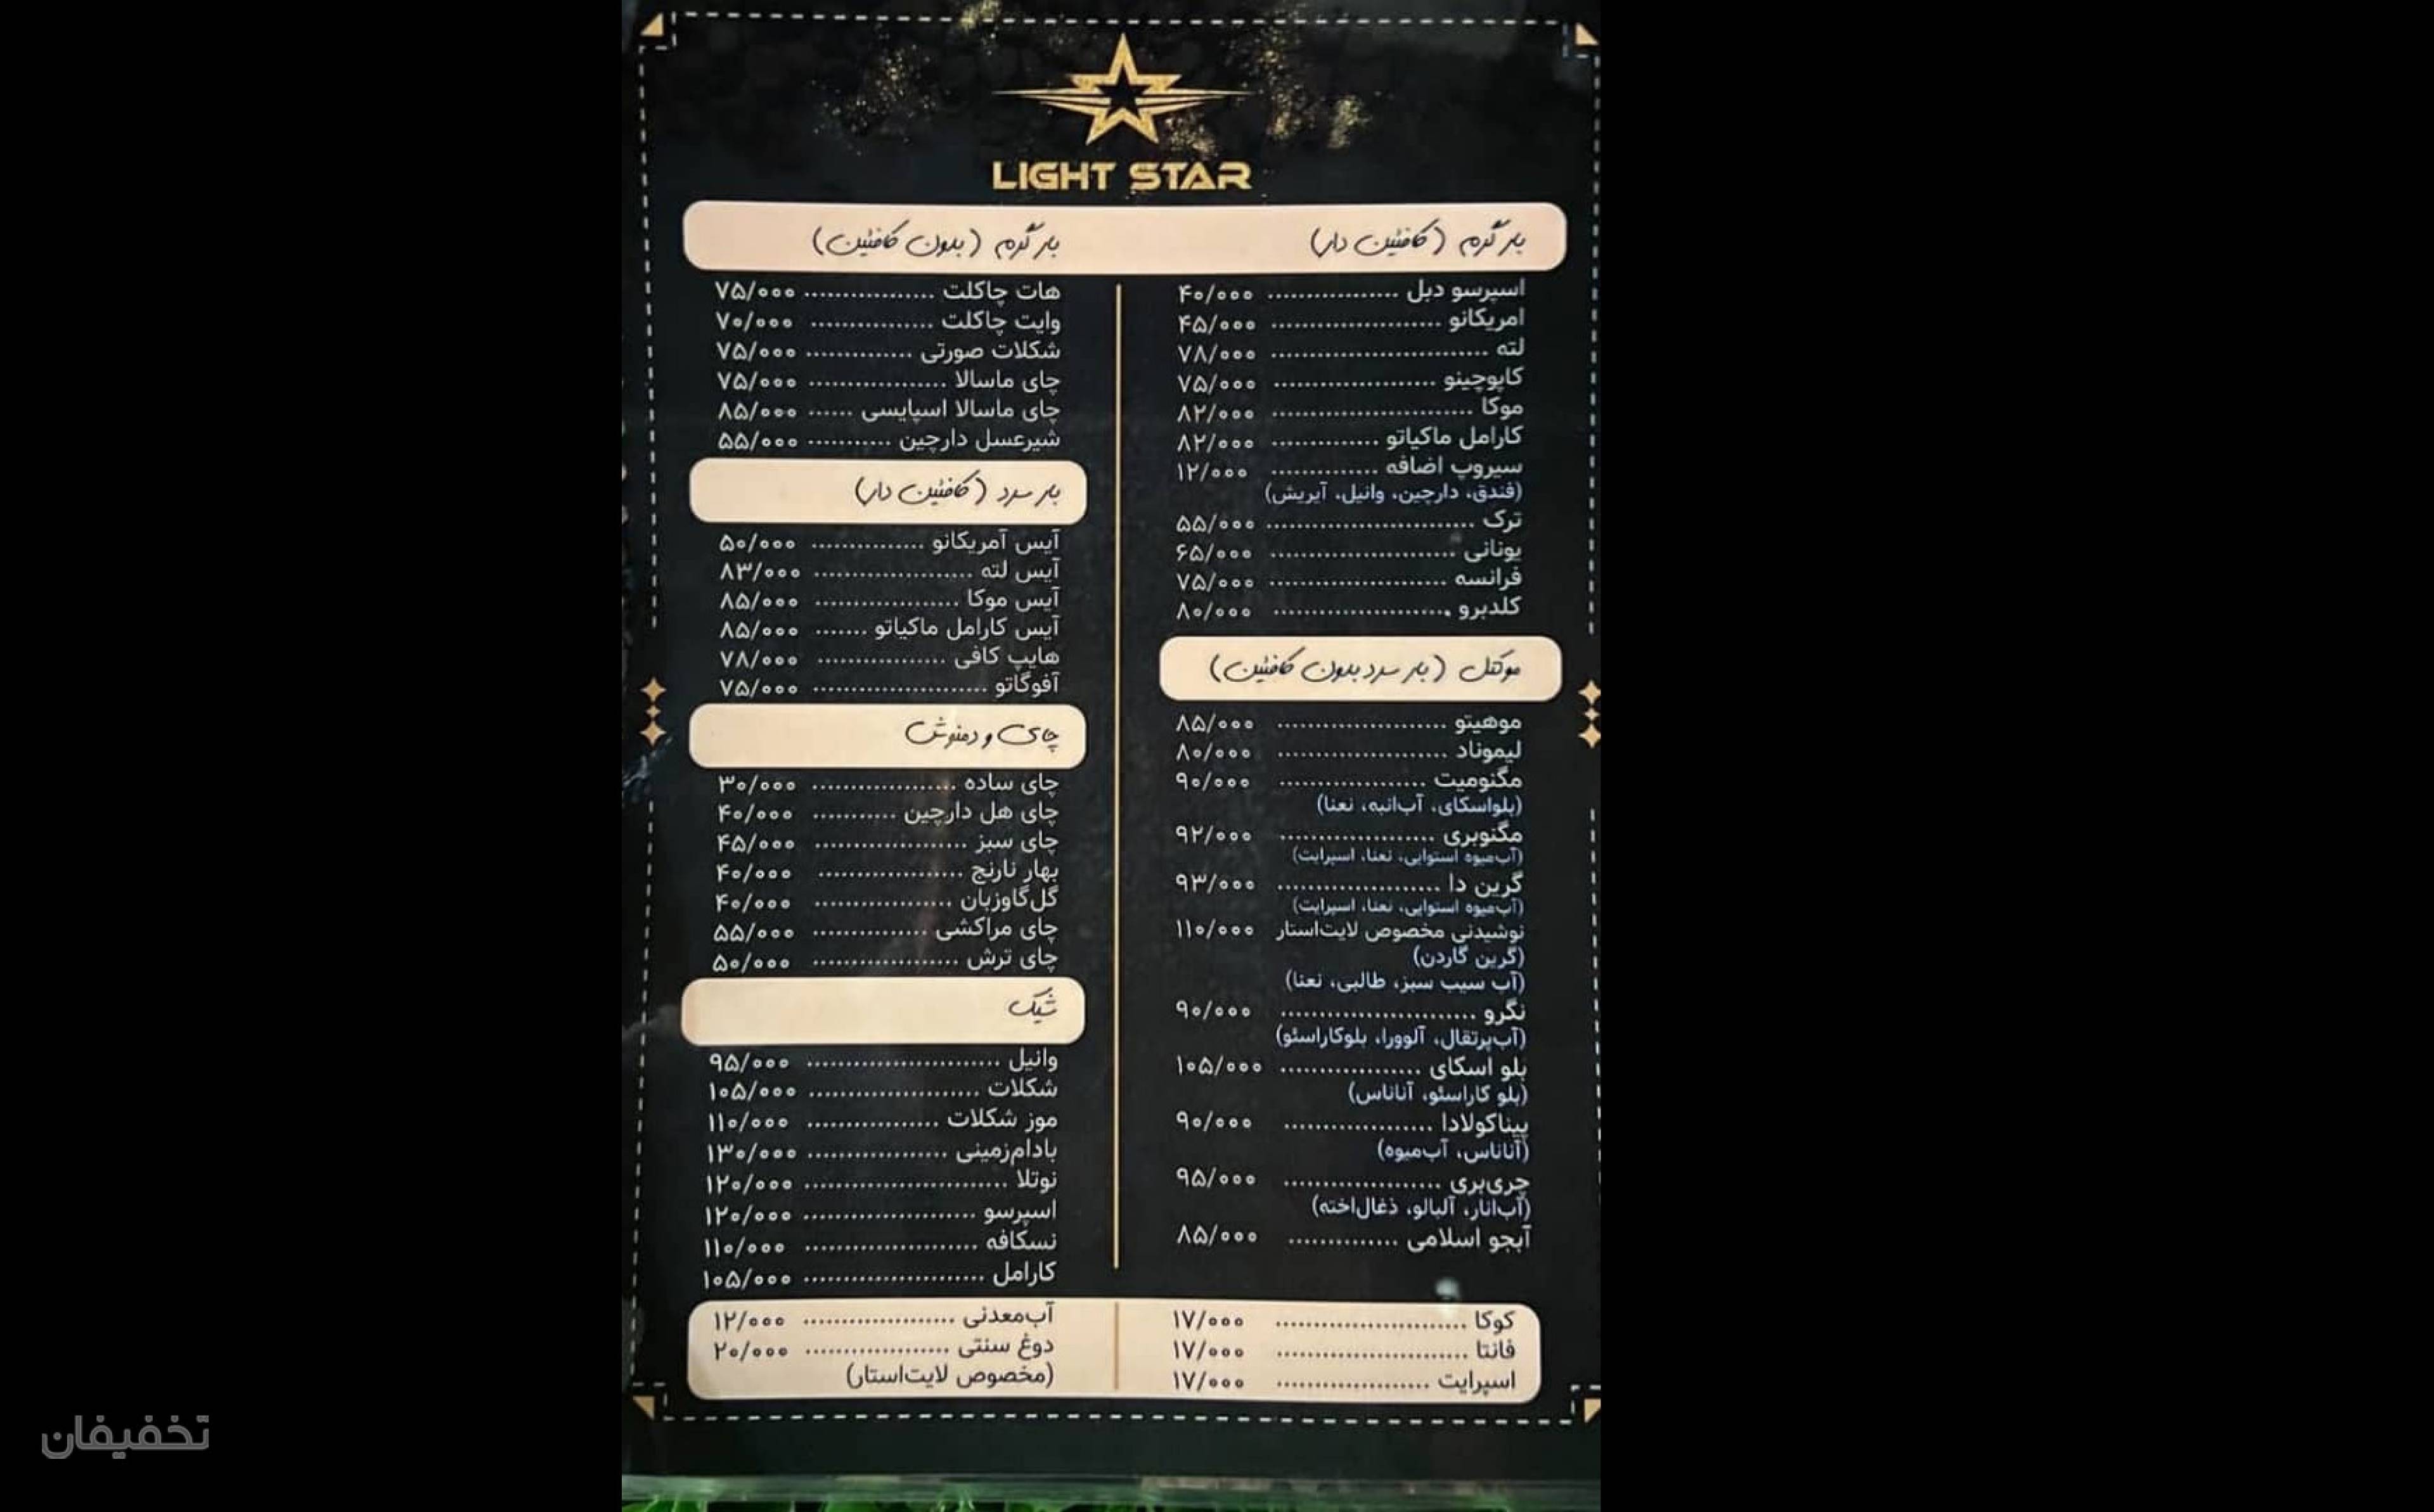 LIGHT STAR
بار گرم (کافئین دار)
اسپرسو دبل .................. ۴۰/۰۰۰
امریکانو ....................... ۴۵/۰۰۰
لته ............................. ۷۸/۰۰۰
کاپوچینو ...................... ۷۵/۰۰۰
موکا ........................... ۸۲/۰۰۰
کارامل ماکیاتو .............. ۸۲/۰۰۰
سیروپ اضافه .............. ۱۲/۰۰۰
(فندق، دارچین، وانیل، آیریش)
ترک ............................ ۵۵/۰۰۰
یونانی ......................... ۶۵/۰۰۰
فرانسه ........................ ۷۵/۰۰۰
کلدبرو ........................ ۸۰/۰۰۰
موکتل (بار سرد بدون کافئین)
موهیتو ....................... ۸۵/۰۰۰
لیموناد ....................... ۸۰/۰۰۰
مگنومیت .................... ۹۰/۰۰۰
(بلواسکای، آب‌انبه، نعنا)
مگنوبری ..................... ۹۲/۰۰۰
(آب‌میوه استوایی، نعنا، اسپرایت)
گرین دا ...................... ۹۳/۰۰۰
(آب‌میوه استوایی، نعنا، اسپرایت)
نوشیدنی مخصوص لایت‌استار ۱۱۰/۰۰۰
(گرین گاردن)
(آب سیب سبز، طالبی، نعنا)
نگرو .......................... ۹۰/۰۰۰
(آب‌پرتقال، آلوورا، بلوکاراسئو)
بلو اسکای ................... ۱۰۵/۰۰۰
(بلو کاراسئو، آناناس)
پیناکولادا .................... ۹۰/۰۰۰
(آناناس، آب‌میوه)
چری‌بری ..................... ۹۵/۰۰۰
(آب‌انار، آلبالو، ذغال‌اخته)
آبجو اسلامی ............... ۸۵/۰۰۰
بار گرم (بدون کافئین)
هات چاکلت .................. ۷۵/۰۰۰
وایت چاکلت ................. ۷۰/۰۰۰
شکلات صورتی .............. ۷۵/۰۰۰
چای ماسالا ................... ۷۵/۰۰۰
چای ماسالا اسپایسی ...... ۸۵/۰۰۰
شیرعسل دارچین ........... ۵۵/۰۰۰
بار سرد (کافئین دار)
آیس آمریکانو ............... ۵۰/۰۰۰
آیس لته ...................... ۸۳/۰۰۰
آیس موکا .................... ۸۵/۰۰۰
آیس کارامل ماکیاتو ....... ۸۵/۰۰۰
هایپ کافی .................. ۷۸/۰۰۰
آفوگاتو ........................ ۷۵/۰۰۰
چای و دمنوش
چای ساده .................... ۳۰/۰۰۰
چای هل دارچین ........... ۴۰/۰۰۰
چای سبز ..................... ۴۵/۰۰۰
بهار نارنج .................... ۴۰/۰۰۰
گل‌گاوزبان ................... ۴۰/۰۰۰
چای مراکشی ................ ۵۵/۰۰۰
چای ترش .................... ۵۰/۰۰۰
شیک
وانیل ........................... ۹۵/۰۰۰
شکلات ........................ ۱۰۵/۰۰۰
موز شکلات .................. ۱۱۰/۰۰۰
بادام‌زمینی ................... ۱۳۰/۰۰۰
نوتلا ............................ ۱۲۰/۰۰۰
اسپرسو ....................... ۱۲۰/۰۰۰
نسکافه ........................ ۱۱۰/۰۰۰
کارامل ......................... ۱۰۵/۰۰۰
کوکا .......................... ۱۷/۰۰۰
فانتا .......................... ۱۷/۰۰۰
اسپرایت ..................... ۱۷/۰۰۰
آب‌معدنی ..................... ۱۲/۰۰۰
دوغ سنتی .................... ۲۰/۰۰۰
(مخصوص لایت‌استار)
تخفیفان